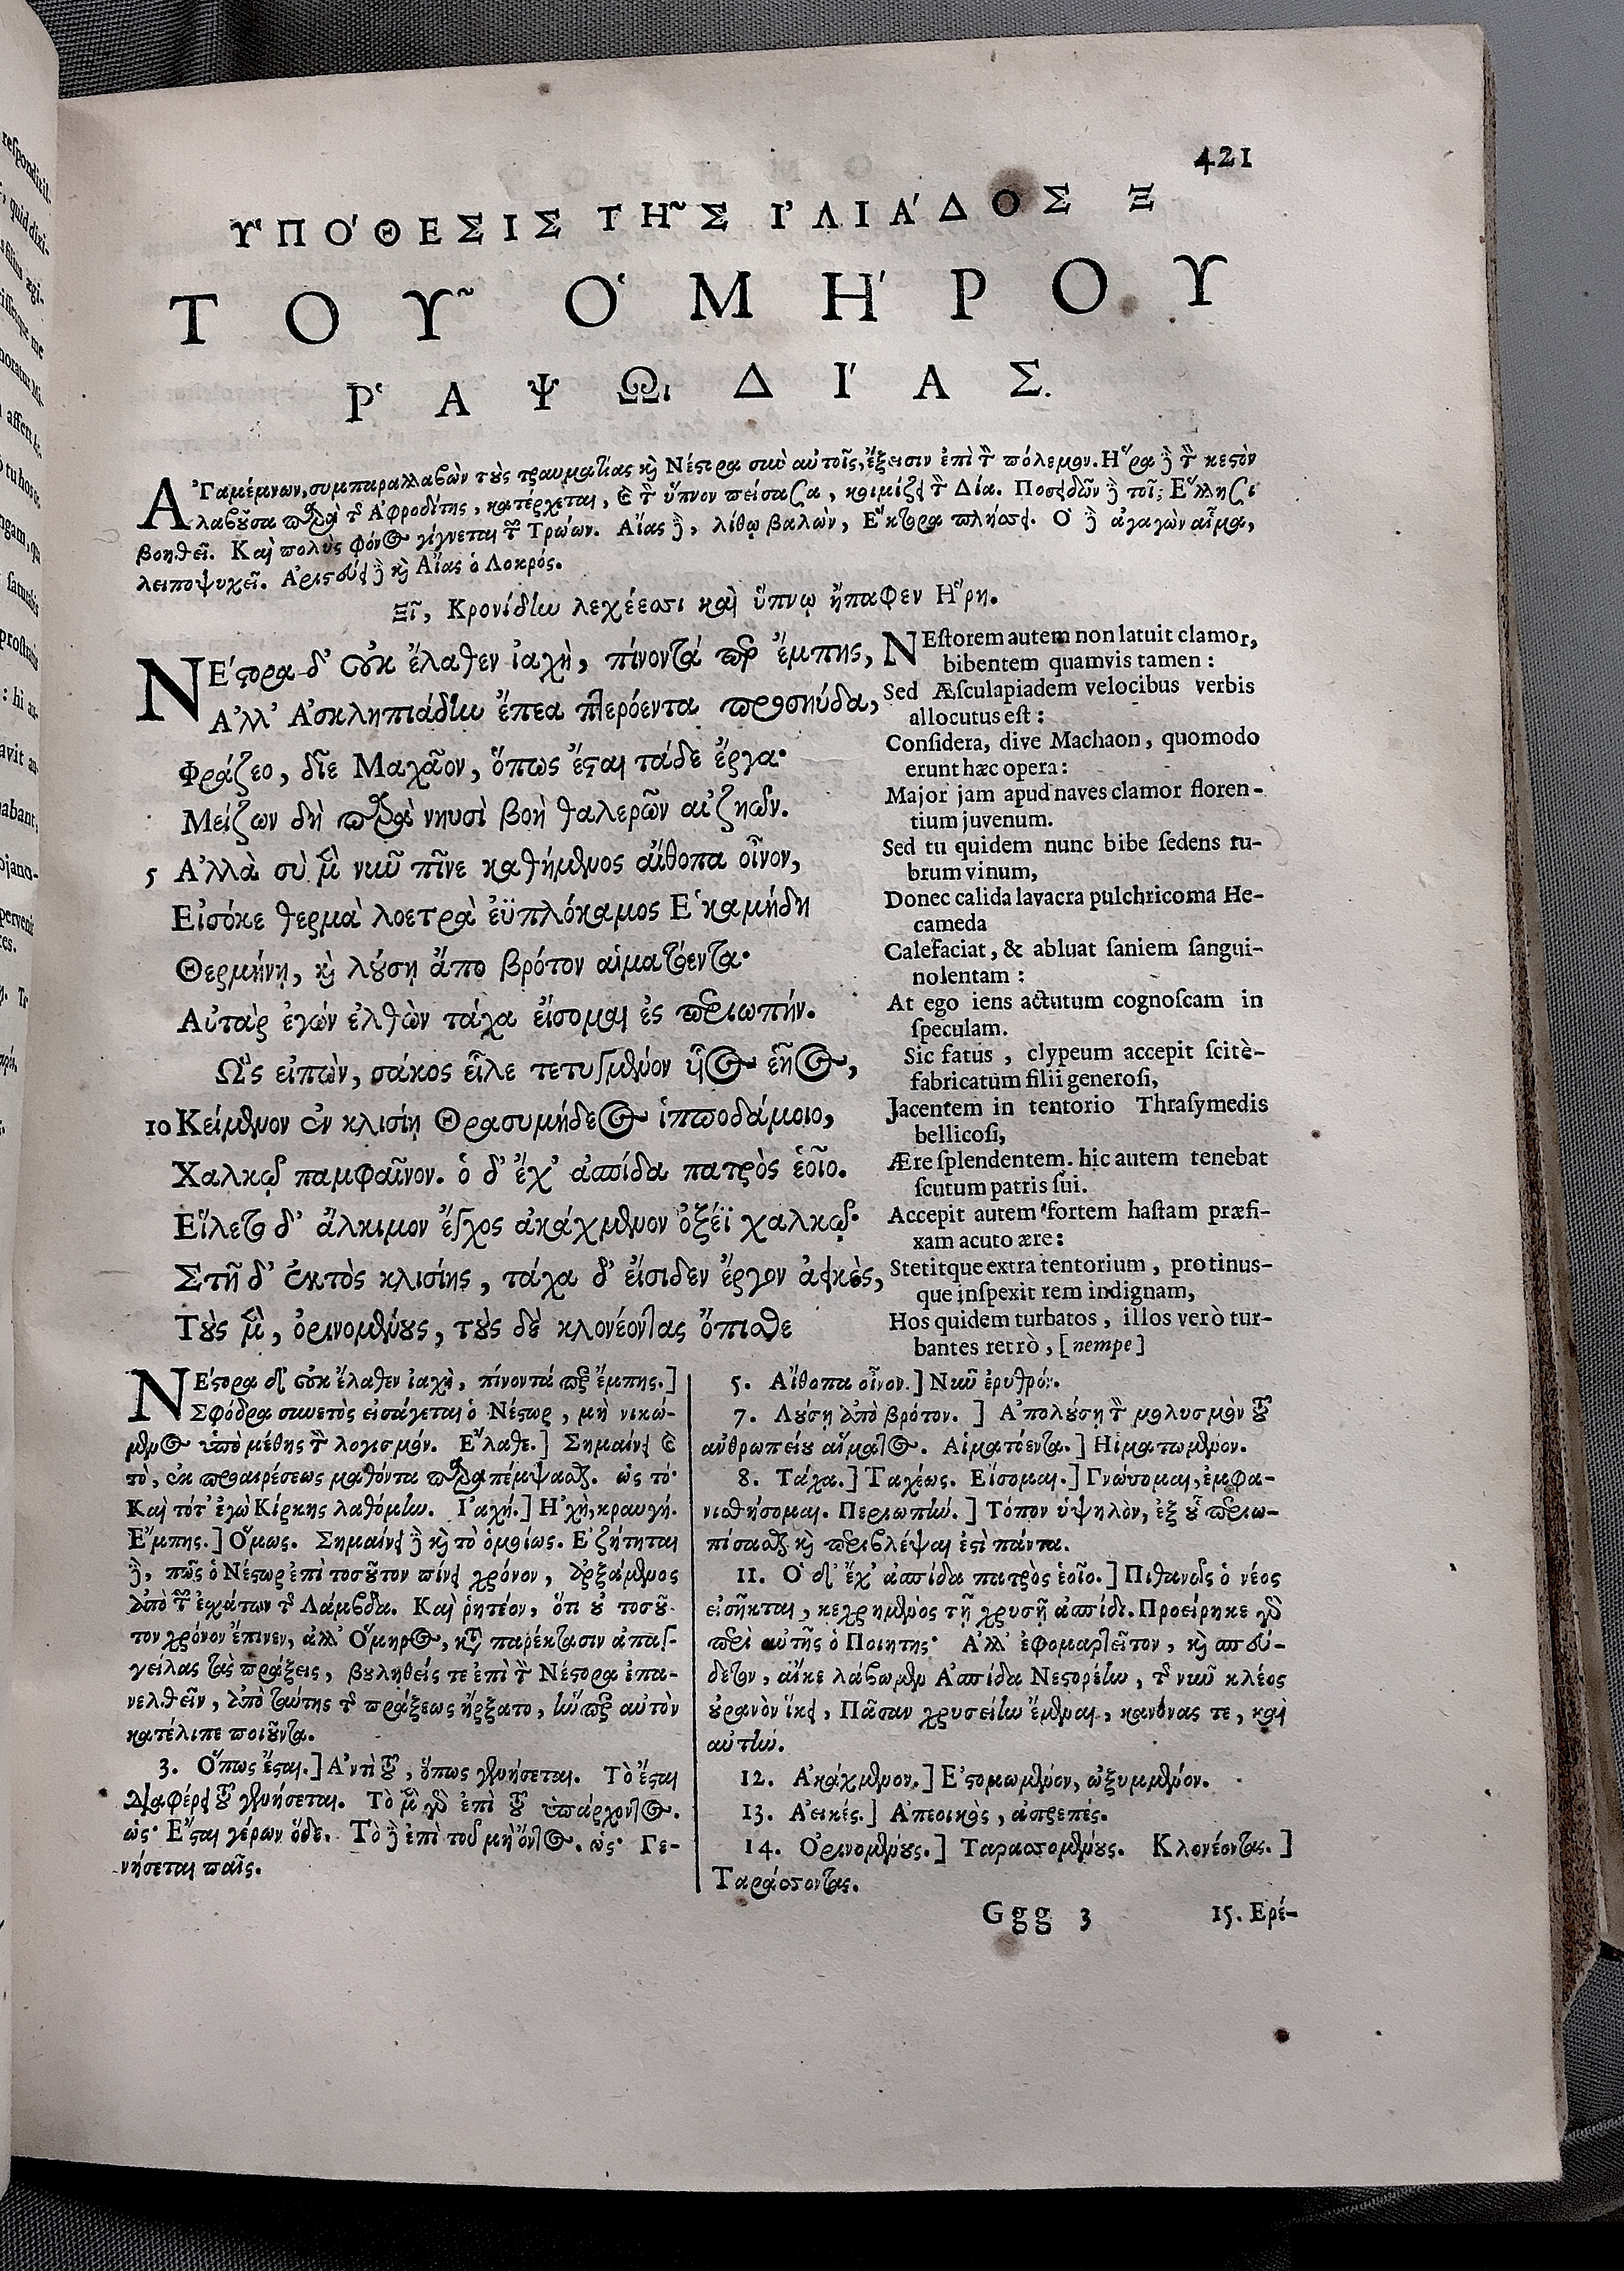 421
ΥΠΌΘΕΣΙΣ ΤΗ͂Σ ἸΛΙΆΔΟΣ Ξ
ΤΟΥ͂ ὉΜΉΡΟΥ
ῬΑΨΩΙΔΊΑΣ.
ἈΓαμέμνων, συμπαραλαβὼν τοὺς τραυματίας καὶ Νέστορα σὺν αὐτοῖς, ἔξεισιν ἐπὶ τὸν πόλεμον. Ἥρα δὲ τὸν κεστὸν
λαβοῦσα παρὰ τῆς Ἀφροδίτης, κατέρχεται, καὶ τὸν ὕπνον πείσασα, κοιμίζει τὸν Δία. Ποσειδῶν δὲ τοῖς Ἕλλησι
βοηθεῖ. Καὶ πολὺς φόνος γίγνεται τῶν Τρώων. Αἴας δὲ, λίθῳ βαλὼν, Ἕκτορα πλήσσει. Ὁ δὲ ἀγαγὼν αἷμα,
λειποψυχεῖ. Ἀριστεύει δὲ καὶ Αἴας ὁ Λοκρός.
Ξῖ, Κρονίδην λεχέεσσι καὶ ὕπνῳ ἤπαφεν Ἥρη.
ΝΈστορα δ' οὐκ ἔλαθεν ἰαχὴ, πίνοντά περ ἔμπης,
Ἀλλ' Ἀσκληπιάδην ἔπεα πτερόεντα προσηύδα,
Φράζεο, δῖε Μαχᾶον, ὅπως ἔσται τάδε ἔργα·
Μείζων δὴ παρὰ νηυσὶ βοὴ θαλερῶν αἰζηῶν.
5 Ἀλλὰ σὺ μὲν νῦν πῖνε καθήμενος αἴθοπα οἶνον,
Εἰσόκε θερμὰ λοετρὰ ἐϋπλόκαμος Ἑκαμήδη
Θερμήνῃ, καὶ λούσῃ ἄπο βρότον αἱματόεντα·
Αὐτὰρ ἐγὼν ἐλθὼν τάχα εἴσομαι ἐς περιωπήν.
Ὣς εἰπὼν, σάκος εἷλε τετυγμένον υἷος ἑῆος,
10 Κείμενον ἐν κλισίῃ Θρασυμήδεος ἱπποδάμοιο,
Χαλκῷ παμφαῖνον. ὁ δ' ἔχ' ἀσπίδα πατρὸς ἑοῖο.
Εἵλετο δ' ἄλκιμον ἔγχος ἀκάχμενον ὀξέϊ χαλκῷ·
Στῆ δ' ἐκτὸς κλισίης, τάχα δ' εἴσιδεν ἔργον ἀεικὲς,
Τοὺς μὲν, ὀρινομένους, τοὺς δὲ κλονέοντας ὄπισθε
NEſtorem autem non latuit clamor,
bibentem quamvis tamen :
Sed Æſculapiadem velocibus verbis
allocutus eſt :
Conſidera, dive Machaon, quomodo
erunt hæc opera :
Major jam apud naves clamor floren-
tium juvenum.
Sed tu quidem nunc bibe ſedens ru-
brum vinum,
Donec calida lavacra pulchricoma He-
cameda
Calefaciat, & abluat ſaniem ſangui-
nolentam :
At ego iens actutum cognoſcam in
ſpeculam.
Sic fatus , clypeum accepit ſcitè-
fabricatum filii generoſi,
Jacentem in tentorio Thraſymedis
bellicoſi,
Ære ſplendentem. hic autem tenebat
ſcutum patris ſui.
Accepit autem fortem haſtam præfi-
xam acuto ære :
Stetitque extra tentorium , protinus-
que inſpexit rem indignam,
Hos quidem turbatos , illos verò tur-
bantes retrò , [nempe]
ΝΈστορα δ' οὐκ ἔλαθεν ἰαχὴ, πίνοντά περ ἔμπης.]
Σφόδρα συνετὸς εἰσάγεται ὁ Νέστωρ, μὴ νικώ-
μενος ὑπὸ μέθης τὸν λογισμόν. Ἔλαθε.] Σημαίνει καὶ
τὸ, ἐκ προαιρέσεως μαθόντα παραπέμψασθαι. ὡς τό·
Καὶ τότ' ἐγὼ Κίρκης λαθόμην. Ἰαχή.] Ἠχὴ, κραυγή.
Ἔμπης.] Ὅμως. Σημαίνει δὲ καὶ τὸ ὁμοίως. Ἐζήτηται
δὲ, πῶς ὁ Νέστωρ ἐπὶ τοσοῦτον πίνει χρόνον, ἀρξάμενος
ἀπὸ τῶν ἐσχάτων τοῦ Λάμβδα. Καὶ ῥητέον, ὅτι οὐ τοσοῦ-
τον χρόνον ἔπινεν, ἀλλ' Ὅμηρος, κατὰ παρέκτασιν ἀπαγ-
γείλας τὰς πράξεις, βουληθείς τε ἐπὶ τὸν Νέστορα ἐπα-
νελθεῖν, ἀπὸ ταύτης τῆς πράξεως ἤρξατο, ἣν περ αὐτὸν
κατέλιπε ποιοῦντα.
3. Ὅπως ἔσται.] Ἀντὶ τοῦ, ὅπως γενήσεται. Τὸ ἔσται
διαφέρει τοῦ γενήσεται. Τὸ μὲν γὰρ ἐπὶ τοῦ ὑπάρχοντος.
ὡς· Ἔσται γέρων ὅδε. Τὸ δὲ ἐπὶ τοῦ μὴ ὄντος. ὡς· Γε-
νήσεται παῖς.
5. Αἴθοπα οἶνον.] Νῦν ἐρυθρόν.
7. Λούσῃ ἀπὸ βρότον. ] Ἀπολούσῃ τὸν μολυσμὸν τοῦ
ἀνθρωπείου αἵματος. Αἱματόεντα.] Ἡιματωμένον.
8. Τάχα.] Ταχέως. Εἴσομαι.] Γνώσομαι, ἐμφα-
νισθήσομαι. Περιωπήν.] Τόπον ὑψηλὸν, ἐξ οὗ περιω-
πίσασθαι καὶ περιβλέψαι ἐστὶ πάντα.
11. Ὁ δ' ἔχ' ἀσπίδα πατρὸς ἑοῖο.] Πιθανῶς ὁ νέος
εἰσῆκται, κεχρημένος τῇ χρυσῇ ἀσπίδι. Προείρηκε γὰρ
περὶ αὐτῆς ὁ Ποιητης· Ἀλλ' ἐφομαρτεῖτον, καὶ σπεύ-
δετον, αἴκε λάβωμεν Ἀσπίδα Νεστορέην, τῆς νῦν κλέος
οὐρανὸν ἵκει, Πᾶσαν χρυσείην ἔμεναι, κανόνας τε, καὶ
αὐτήν.
12. Ἀκάχμενον.] Ἐστομωμένον, ὠξυμμένον.
13. Ἀεικές.] Ἀπεοικὸς, ἀπρεπές.
14. Ὀρινομένους.] Ταρασσομένους. Κλονέοντας. ]
Ταράσσοντας.
Ggg 3 15. Ερέ-